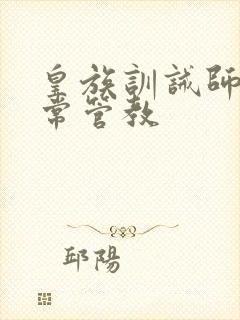 皇族訓誡師
常管教
邱陽